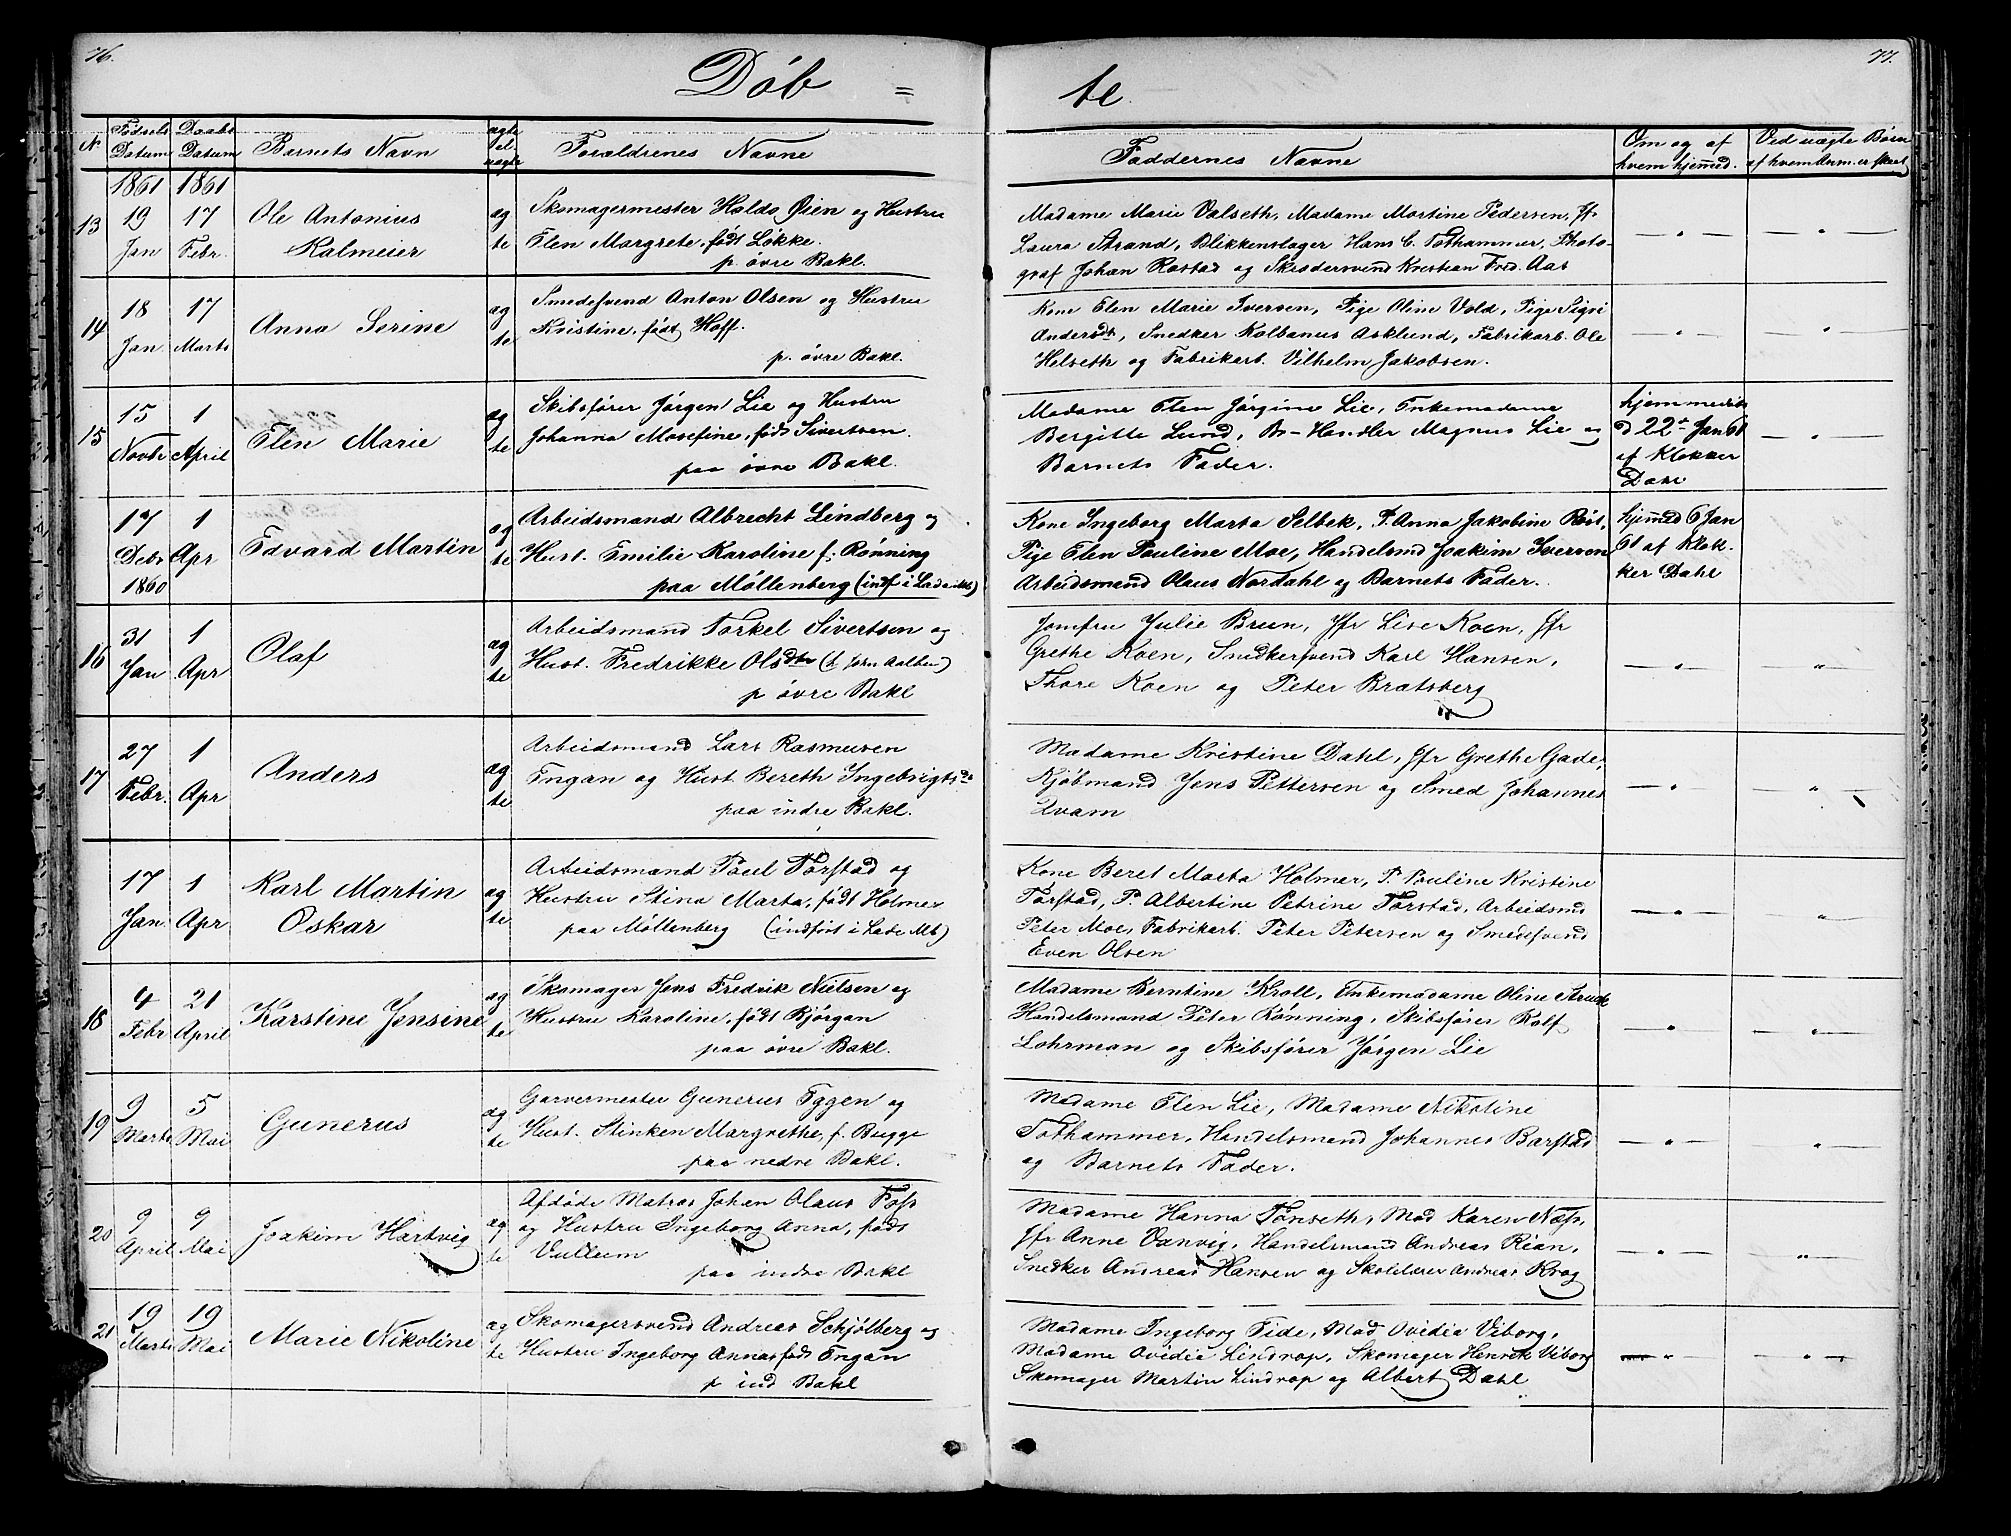 76.
Døb =
N
Fødsels Datum
Daabs Datum
Barnets Navn
ægte el uægte
Forældrenes Navne
1861 1861
13
19 Jan
17 Febr.
Ole Antonius
Kalmeier
æg
te
Skomagermester Haldo Øien og Hustru
Elen Margrete, født Løkke.
p. øvre Bakl.
14
18 Jan
17 Marts
Anna Serine
æg
te
Smedesvend Anton Olsen og Hustru
Kristine, født Hoff.
p. øvre Bakl.
15
15 Novbr
1 April
Elen Marie
æg
te
Skibsfører Jørgen Lie og Hustru
Johanna Mosefine, føds Sivertsen.
paa øvre Bakl.
17 Debr 1860
1 Apr
Edvard Martin
æg
te
Arbeidsmand Albrecht Lindberg og
Hust. Emilie Karoline f: Rønning
paa Møllenberg (indf i Lade Mb)
16
31 Jan
1 Apr
Olaf
æg
te
Arbeidsmand Torkel Sivertsen og
Hust. Fredrikke Olsdtr
p øvre Bakl
17
27 Febr.
1 Apr
Anders
æg
te
Arbeidsmand Lars Rasmusen
Engan og Hust Bereth Ingebrigtsdr
paa indre Bakl.
17 Jan
1 Apr
Karl Martin
Oskar
æg
te
Arbeidsmand Paul Forstad og
Hustru Stina Marta, født Holmer
paa Møllenberg (indført i Lade Mb)
18
4 Febr
21 April
Karstine Jensine
æg
te
Skomager Jens Fredrik Nielsen og
Hustru Karoline, født Bjørgan
paa øvre Bakl.
19
9 Marts
5 Mai
Gunerus
æg
te
Garvermester Gunerus Eggen og
Hust. Stinken Margrethe, f. Bugge
paa nedre Bakl.
20
9 April
9 Mai
Joakim Hartvig
æg
te
Afdøde Matros Johan Olaus Foss
og Hustru Ingeborg Anna, føds
Vullum
paa indre Bakl
21
19 Marts
19 Mai
Marie Nikoline
æg
te
Skomagersvend Andreas Schjølberg og
Hustru Ingeborg Anna føds Engan
p ind Bakl
77.
te.
Faddernes Navne
Om og af
hvem hjemmd.
Ved uægte Børn
af hvem Anm. er skeet
Madame Marie Valseth, Madame Martine Pedersen, Jfr
Laura Strand, Blikkenslager Hans C. Tothammer, Photo-
graf Johan Rostad og Skredersvend Kristian Fred. Aas
Kone Elen Marie Iversen, Pige Oline Vold, Pige Sigri
Andersdtr, Snedker Kolbanus Asklund, Fabrikarb. Ole
Helseth og Fabrikarb. Vilhelm Jakobsen.
Madame Elen Jørgine Lie, Enkemadame
Bergitte Lund, Br-Handler Magnus Lie og
Barnets Fader.
hjemmedøb
d 22de Jan 61
af Klokker
Dahl
Kone Ingeborg Marta Selbek, P. Anna Jakobine Røst,
Pige Elen Pauline Moe, Handelsmd Joakim Iversen
Arbeidsmand Olaus Nordahl og Barnets Fader.
hjemmd 6 Jan
61 af Klok-
ker Dahl
Jomfru Julie Brun, Jfr Lise Koen, Jfr
Grethe Koen, Snedkersvend Karl Hansen,
Thore Koen og Peter Bratsberg
Madame Kristine Dahl, Jfr Grethe Gade,
Kjøbmand Jens Pettersen og Smed Johannes
Qvam
Kone Beret Marta Holmer, P. Pauline Kristine
Forstad, P. Albertine Petrine Forstad, Arbeidsmd
Peter Moe, Fabrikarb. Peter Petersen og Smedesvend
Even Olsen
Madame Berntine Kroll, Enkemadame Oline Struck
Handelsmand Peter Rønning, Skibsfører Rolf
Lohrman og Skibsfører Jørgen Lie
Madame Elen Lie, Madame Nikoline
Tothammer, Handelsmand Johannes Barstad
og Barnets Fader.
Madame Hanna Tønseth, Mad Karen Næss,
Jfr Anne Vanvig, Handelsmand Andreas Rian,
Snedker Andreas Hansen og Skolelærer Andreas Krog
Madame Ingeborg Eide, Mad Ovidia Viborg,
Madame Ovidia Lindrop, Skomager Henrik Viborg
Skomager Martin Lindrop og Albert Dahl